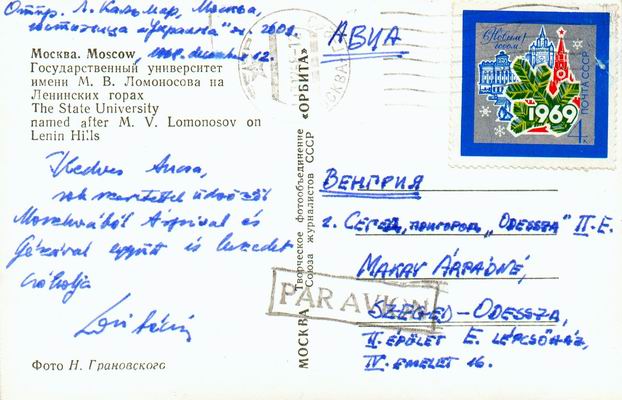 Отпр. Л. Кальмар, Москва,
гостиница "Украина" н. 2002.
Москва. Moscow, 1968. december 12.
Государственный университет
имени М. В. Ломоносова на
Ленинских горах
The State University
named after M. V. Lomonosov on
Lenin Hills
Kedves Anna,
sok szeretettel üdvözöl
Moszkvából Árpival és
Gézával együtt is kezedet
csókolja
Фото Н. Грановского
МОСКВА Творческое фотообъединение «ОРБИТА»
Союза журналистов СССР
АВИА
С Новым
годом!
1969
ПОЧТА СССР
4
ВЕНГРИЯ
г. Сегед, пригород „Odessza" II-E.
MAKAY ÁRPÁDNÉ,
PAR AVION
SZEGED-ODESSZA,
II. ÉPÜLET E. LÉPCSŐHÁZ,
IV. EMELET 16.